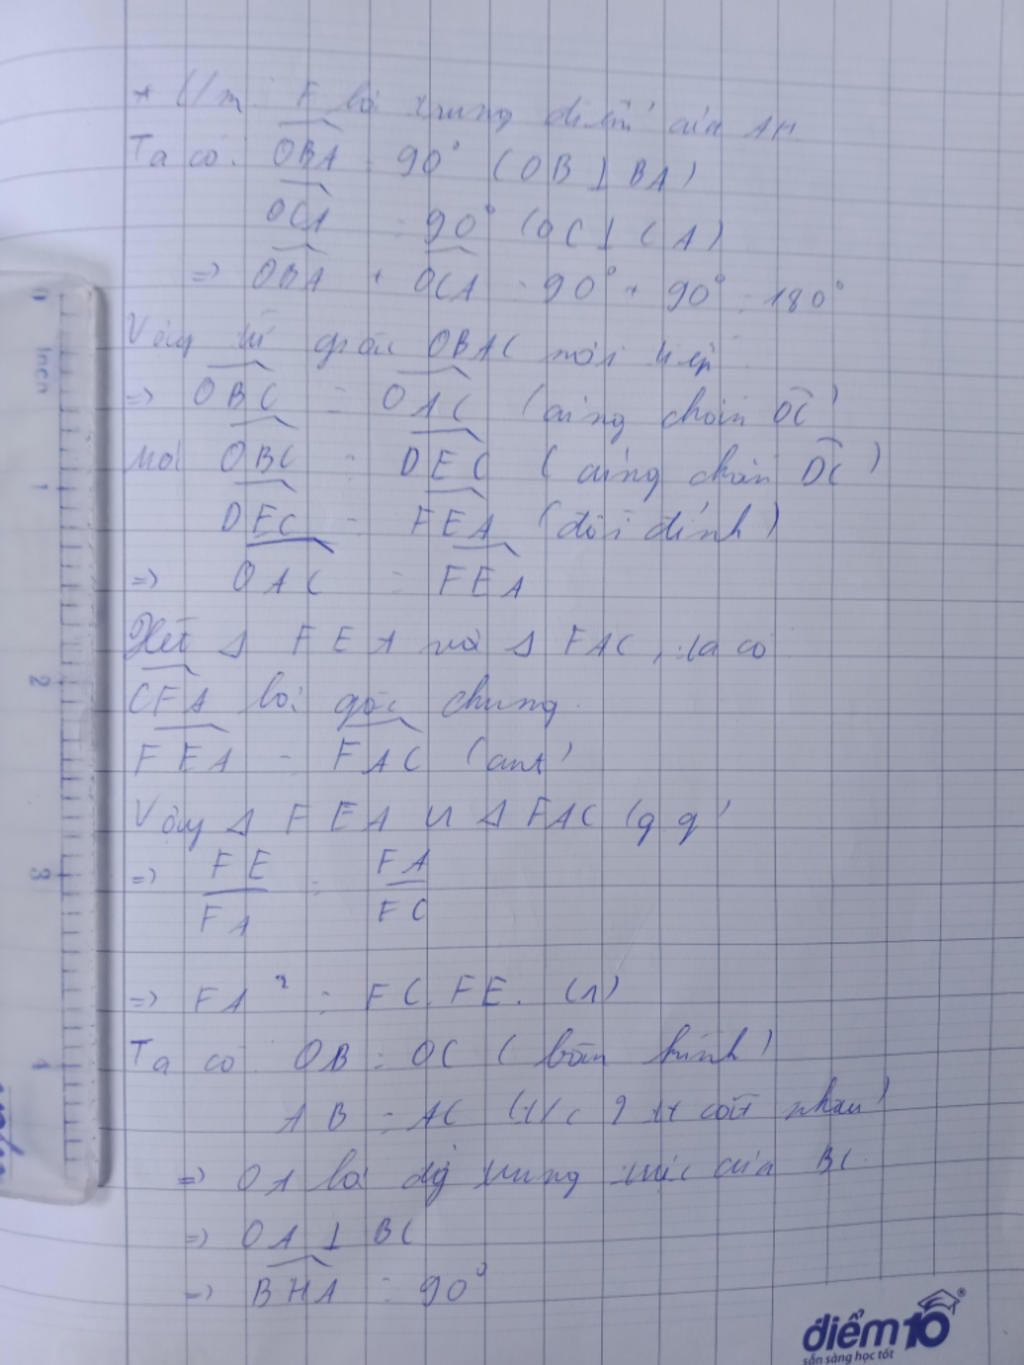 * C/m: F là trung điểm của AH
Ta có: OBA = 90° (OB ⊥ BA)
OCA = 90° (OC ⊥ CA)
=> OBA + OCA = 90° + 90° = 180°
Vậy tứ giác OBAC nội tiếp
=> OBC = OAC (cùng chắn OC)
Mà OBC = DEC (cùng chắn DC)
DEC = FEA (đối đỉnh)
=> OAC = FEA
Xét Δ FEA và Δ FAC, ta có
CFA là góc chung
FEA = FAC (cmt)
Vậy Δ FEA ∽ Δ FAC (g g)
=> FE/FA = FA/FC
=> FA² = FC. FE. (1)
Ta có OB = OC (bán kính)
AB = AC (t/c 2 tt cắt nhau)
=> OA là đg trung trực của BC
=> OA ⊥ BC
=> BHA = 90°
0
inch
1
2
3
4
điểm10
sẵn sàng học tốt